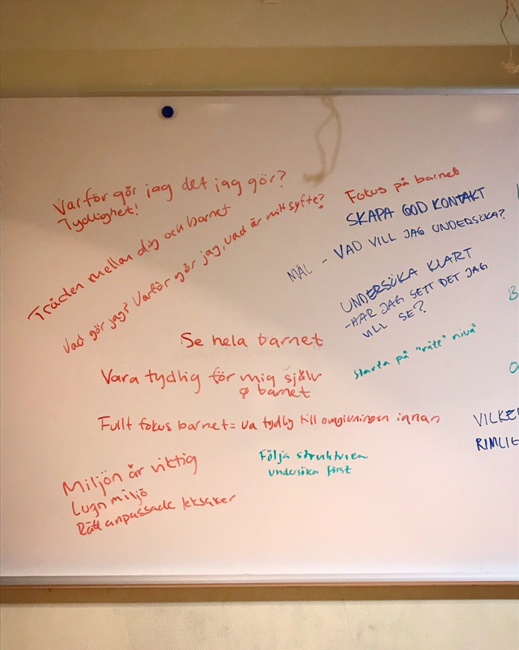 Varför gör jag det jag gör?
Tydlighet!
Tråden mellan dig och barnet
Vad gör jag? Varför gör jag, vad är mitt syfte?
Fokus på barnet
SKAPA GOD KONTAKT
MÅL - VAD VILL JAG UNDERSÖKA?
UNDERSÖKA KLART
-HAR JAG SETT DET JAG
VILL SE?
Se hela barnet
Starta på "rätt" nivå
Vara tydlig för mig själv
o barnet
Fullt fokus barnet = va tydlig till omgivningen innan
VILKE
RIMLI
Miljön är viktig
Lugn miljö
Rätt anpassade leksaker
Följa strukturen
undersöka först